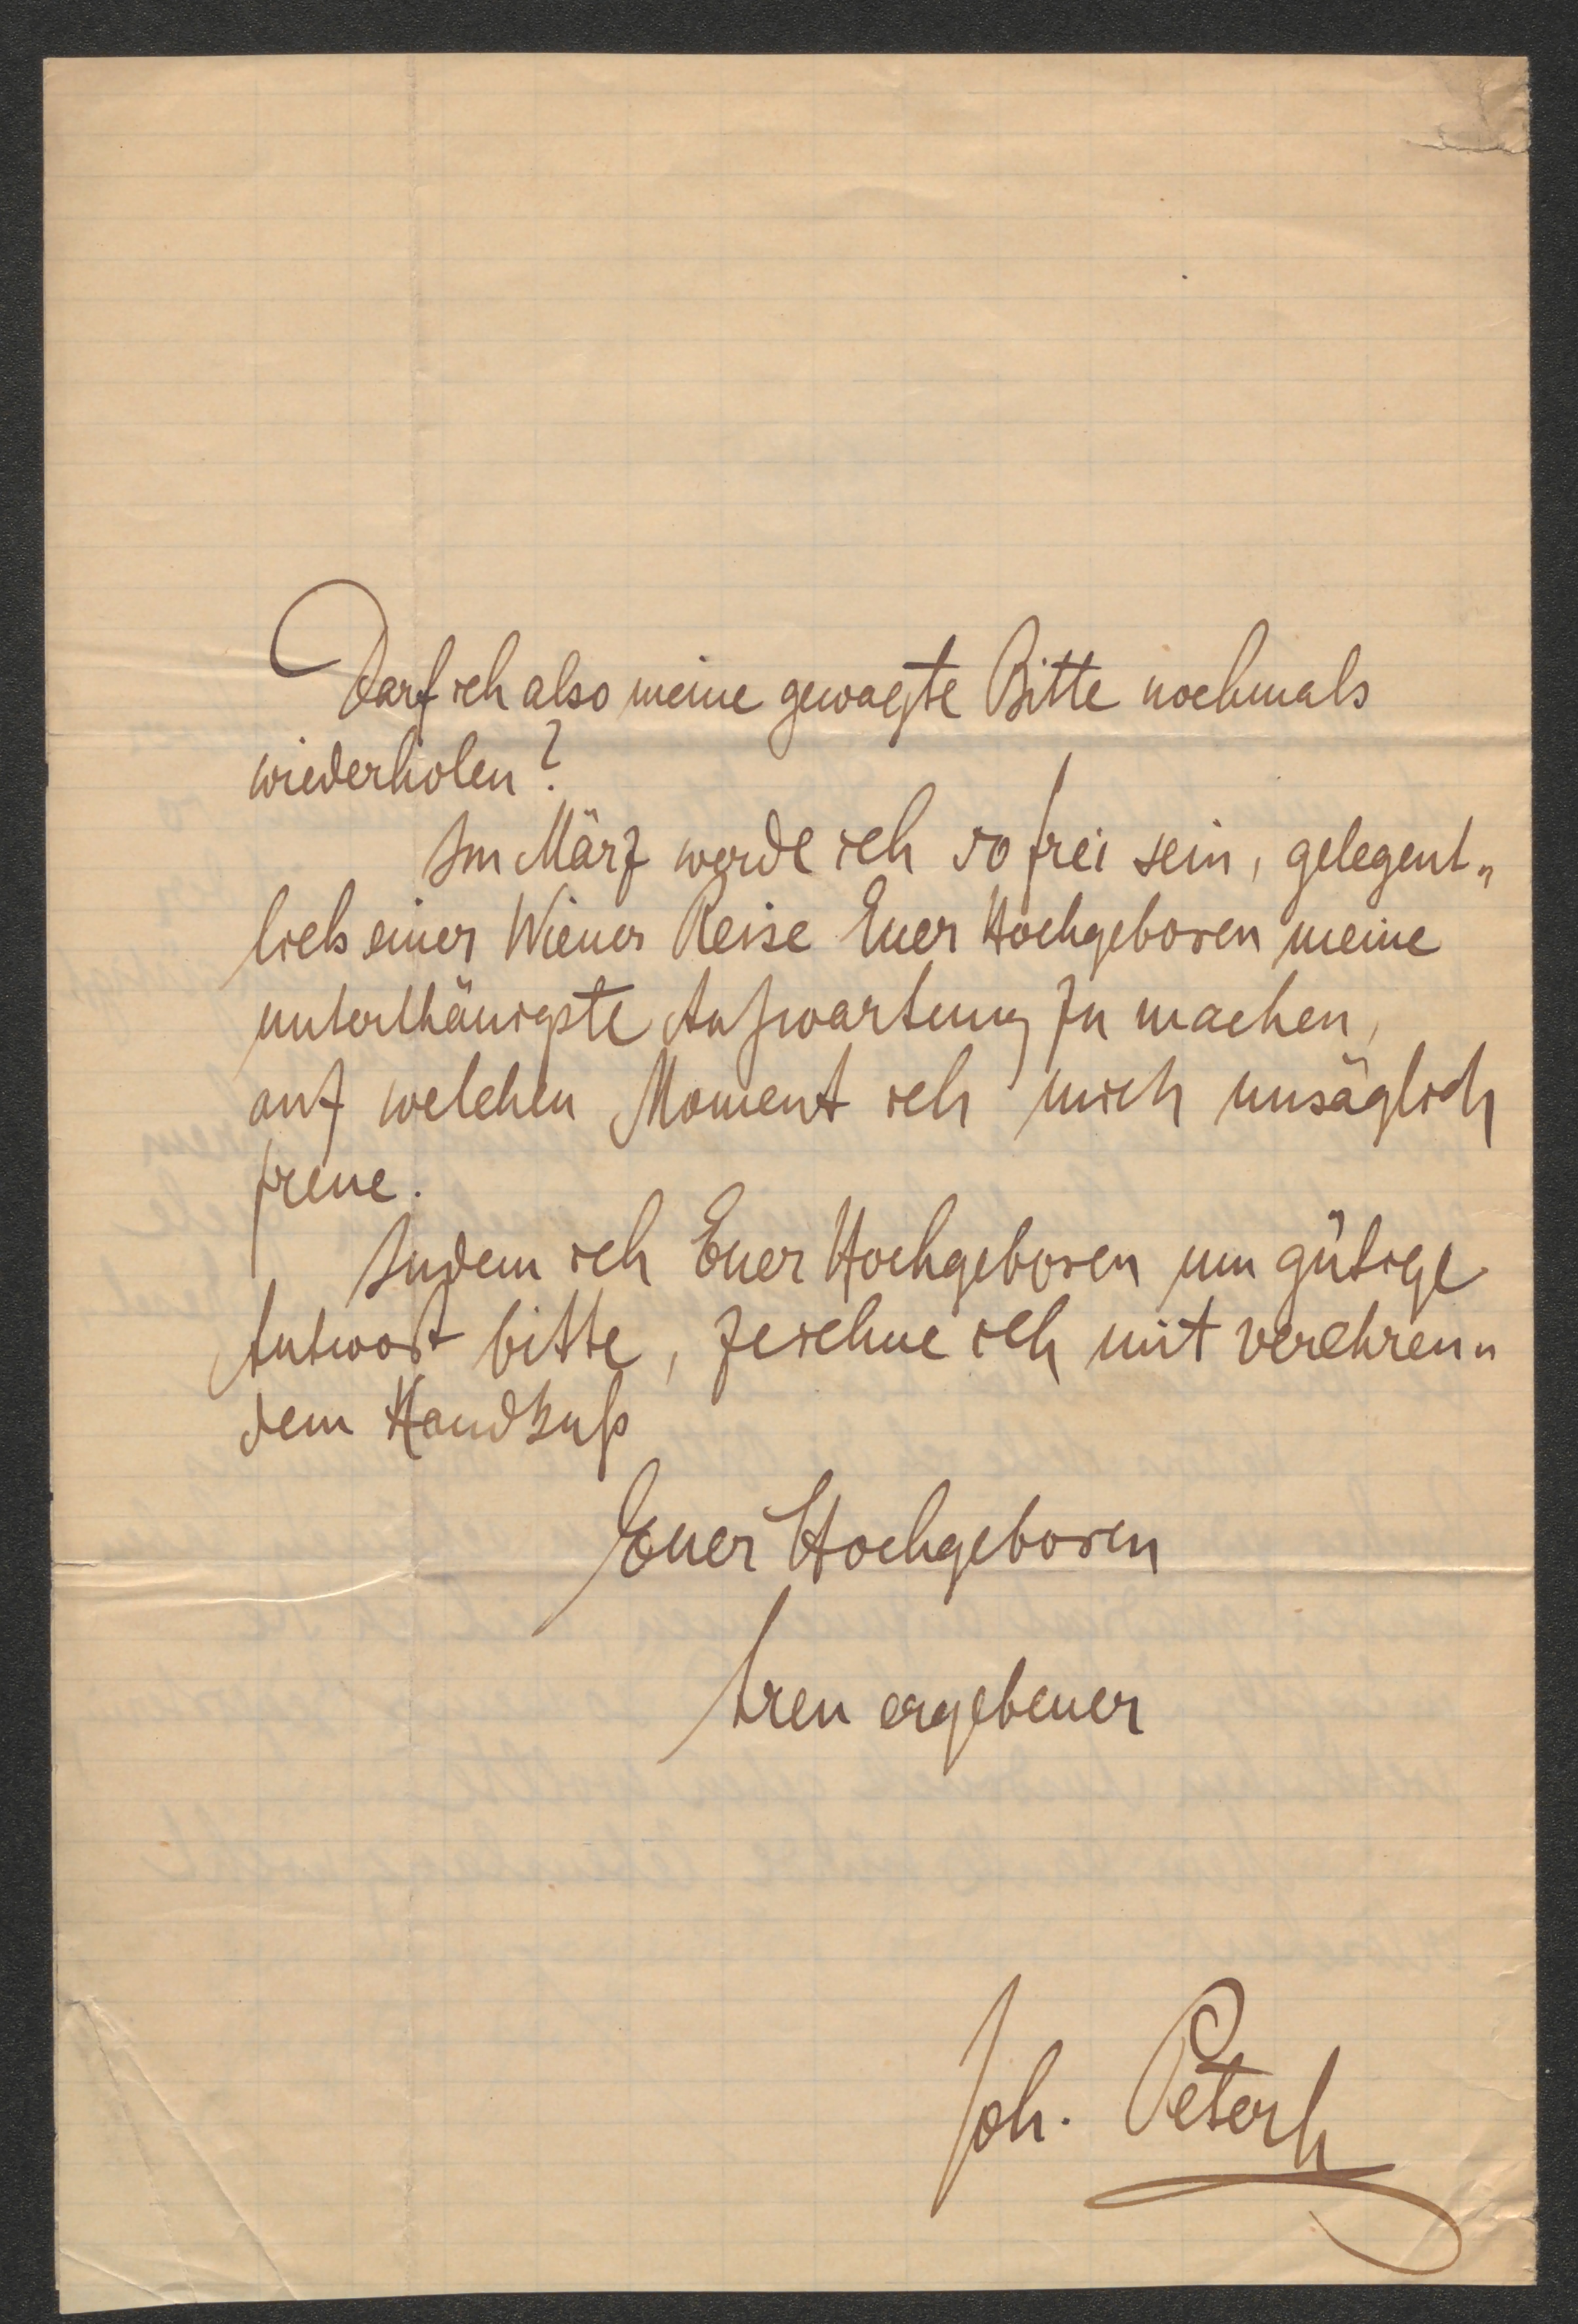 Darf ich also meine gewagte Bitte nochmals
wiederholen?
Im März werde ich so frei sein, gelegent„
lich einer Wiener Reise Euer Hochgeboren meine
unterthänigste Aufwartung zu machen,
auf welchen Moment ich mich unsäglich
freue.
Indem ich Euer Hochgeboren um gütige
Antwort bitte, zeichne ich mit verehren„
dem Handkuß
Euer Hochgeboren
treu ergebener
Joh. Peterl